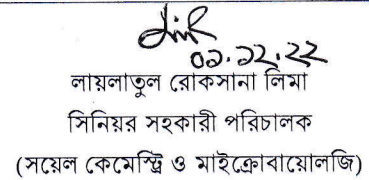 ০১.১২.২২
লায়লাতুল রোকসানা লিমা
সিনিয়র সহকারী পরিচালক
(সয়েল কেমেস্ট্রি ও মাইক্রোবায়োলজি)